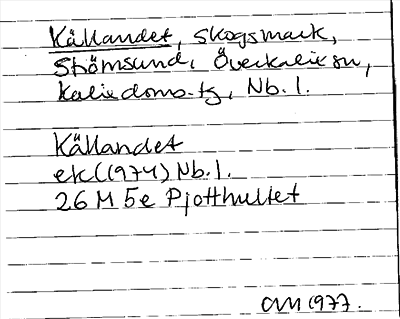 Källandet, skogsmark,
Strömsund, Överkalix sn,
Kalix doms. tg, Nb. l.
Källandet
ek (1974) Nb. l.
26 M 5e Pjotthultet
1977.